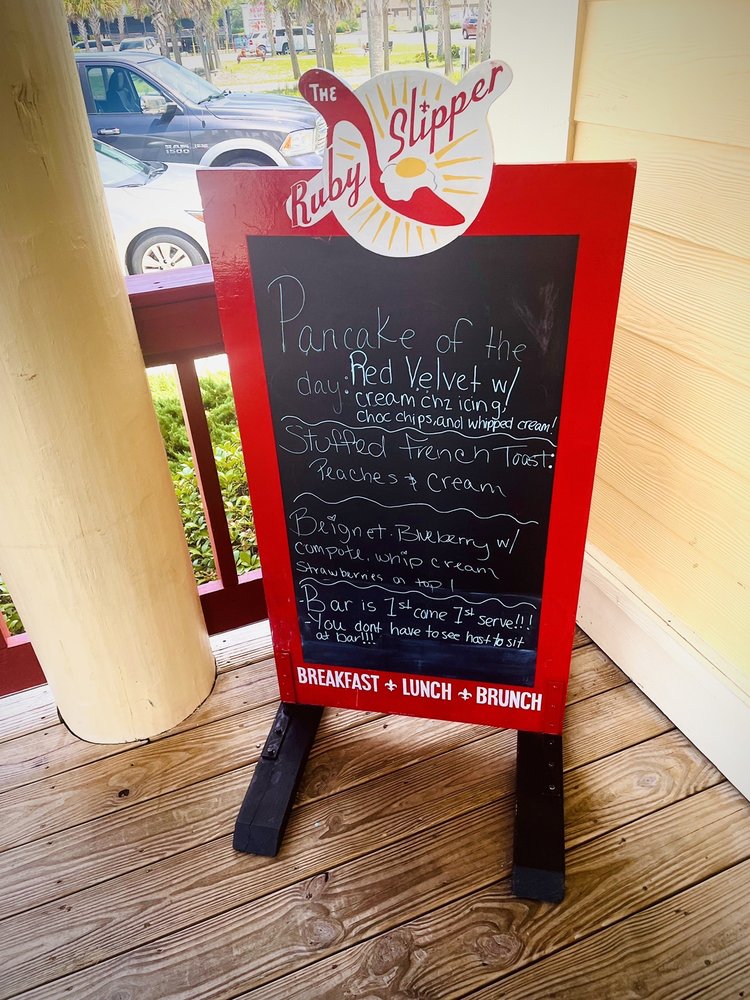 RAM
1500
THE
Ruby Slipper
Pancake of the
day: Red Velvet w/
cream chz icing!
choc chips, and whipped cream!
Stuffed French Toast:
Peaches & Cream
Beignet. Blueberry w/
compote, whip cream
Strawberries on top!
-Bar is 1st come 1st serve!!!
-You dont have to see host to sit
at bar!!!
BREAKFAST ⚜ LUNCH ⚜ BRUNCH